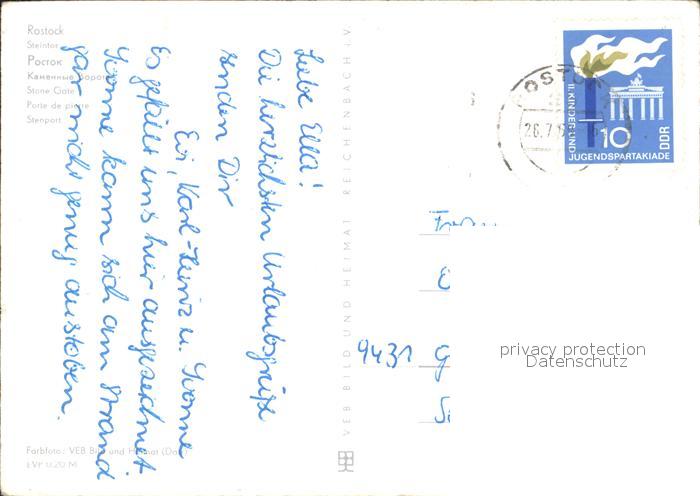 Rostock
Steintor
Росток
Каменные Ворота
Stone Gate
Porte de pierre
Stenport
Liebe Ella!
Die herzlichsten Urlaubsgrüße
senden Dir
Evi, Karl-Heinz u. Yvonne
Es gefällt uns hier ausgezeichnet
Yvonne kann sich am Strand
gar nicht genug austoben.
Farbfoto: VEB Bild und Heimat
EVP 0.20 M
VEB BILD UND HEIMAT REICHENBACH i. V.
ROSTOCK
26.7.
II. KINDER UND
JUGENDSPARTAKIADE
10
DDR
9431 G
privacy protection
Datenschutz